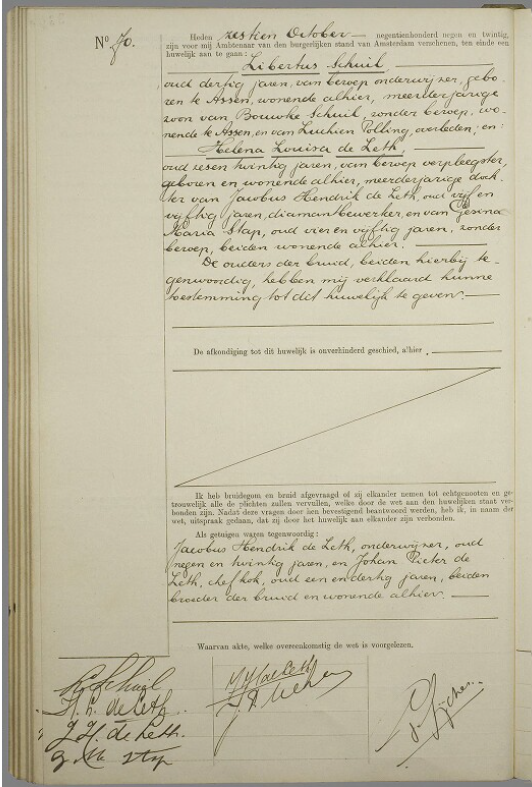 No 70.
Heden zestien October negentienhonderd negen en twintig,
zijn voor mij Ambtenaar van den burgerlijken stand van Amsterdam verschenen, ten einde een
huwelijk aan te gaan:
Libertus Schuil
oud dertig jaren, van beroep onderwijzer, gebo-
ren te Assen, wonende alhier, meerderjarige
zoon van Bouwke Schuil, zonder beroep, wo-
nende te Assen, en van Luchien Polling, overleden, en:
Helena Louisa de Leth,
oud zesen twintig jaren, van beroep verpleegster,
geboren en wonende alhier, meerderjarige doch-
ter van Jacobus Hendrik de Leth, oud vijf en
vijftig jaren, diamantbewerker, en van Gesina
Maria Stap, oud vier en vijftig jaren, zonder
beroep, beiden wonende alhier.
De ouders der bruid, beiden hierbij te-
genwoordig, hebben mij verklaard hunne
toestemming tot dit huwelijk te geven.
De afkondiging tot dit huwelijk is onverhinderd geschied, alhier.
Ik heb bruidegom en bruid afgevraagd of zij elkander nemen tot echtgenooten en ge-
trouwelijk alle de plichten zullen vervullen, welke door de wet aan den huwelijken staat ver-
bonden zijn. Nadat deze vragen door hen bevestigend beantwoord werden, heb ik, in naam der
wet, uitspraak gedaan, dat zij door het huwelijk aan elkander zijn verbonden.
Als getuigen waren tegenwoordig:
Jacobus Hendrik de Leth, onderwijzer, oud
negen en twintig jaren, en Johan Pieter de
Leth, chef kok, oud een en dertig jaren, beiden
broeder der bruid en wonende alhier.
Waarvan akte, welke overeenkomstig de wet is voorgelezen.
L. Schuil
H. L. de Leth
J. H. de Leth.
G. M. Stap
J H de Leth